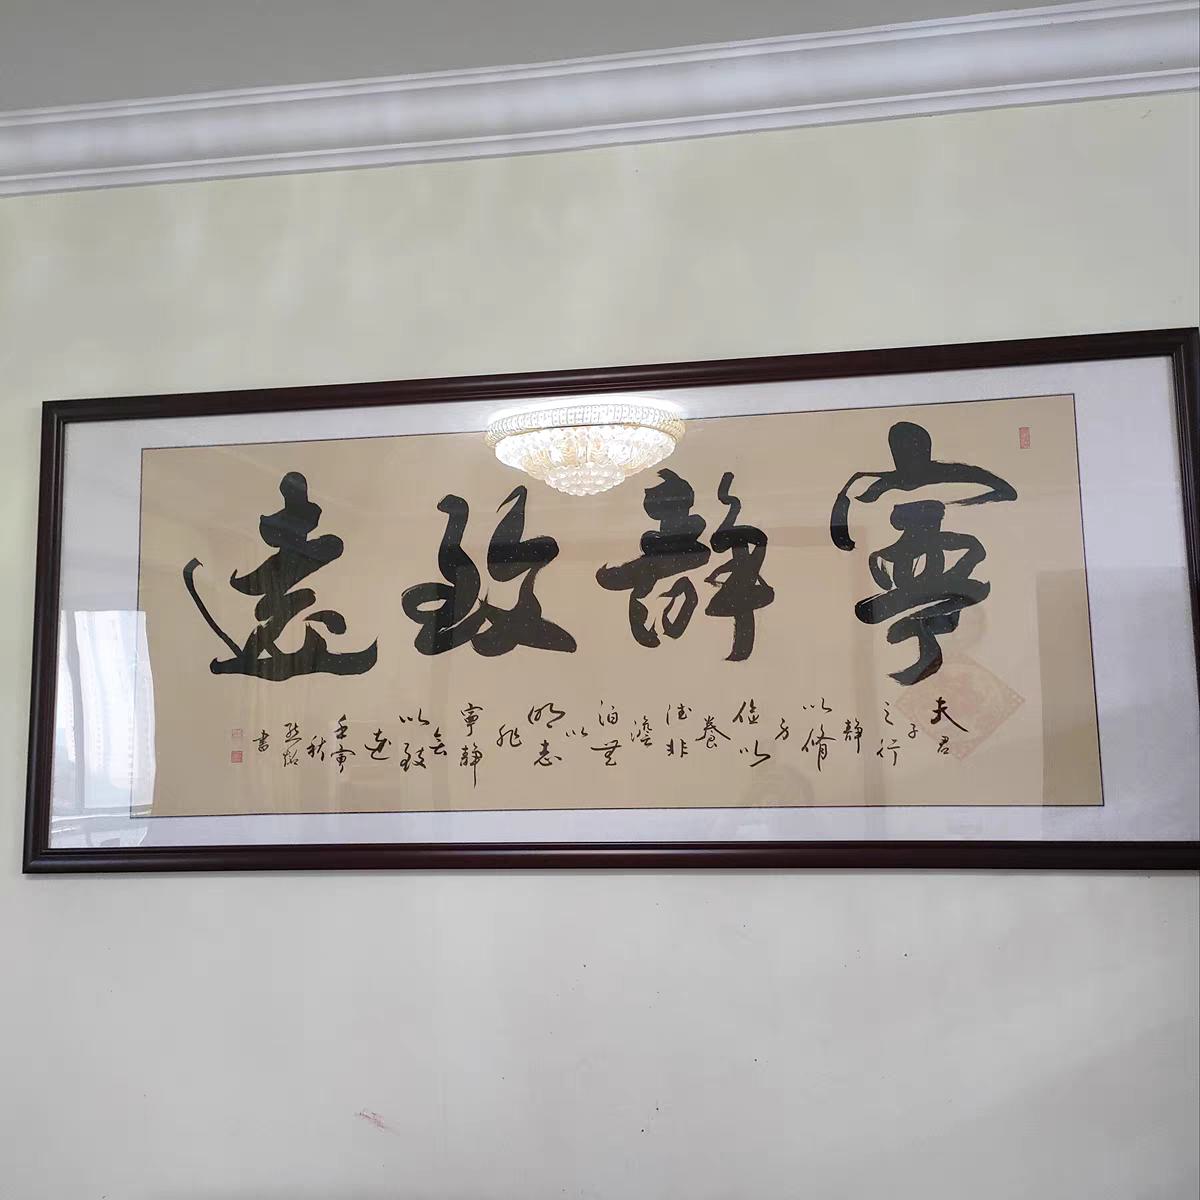 寧靜致遠
夫君子之行靜以脩身儉以養德非澹泊無以明志非寧靜無以致遠壬寅秋書